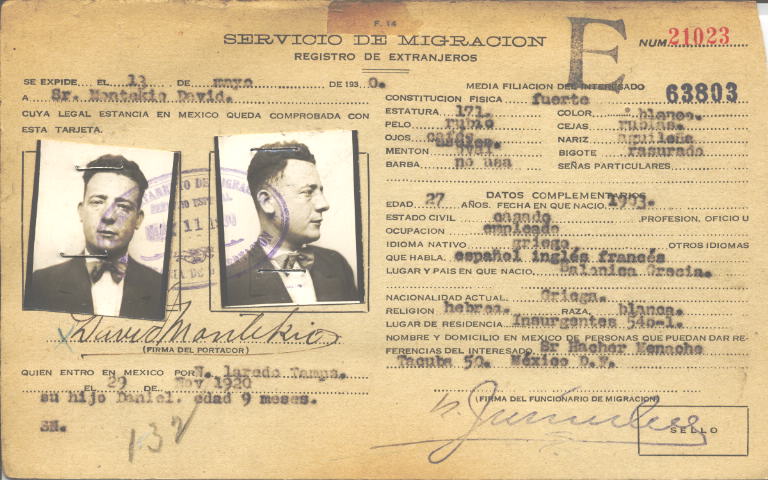 F. 14
SERVICIO DE MIGRACION
REGISTRO DE EXTRANJEROS
E
NUM 21023
63803
SE EXPIDE EL 13 DE mayo DE 1930.
A Sr. Montekio David.
CUYA LEGAL ESTANCIA EN MEXICO QUEDA COMPROBADA CON
ESTA TARJETA.
MAY 11 1930
David Montekio
(FIRMA DEL PORTADOR)
QUIEN ENTRO EN MEXICO POR N. laredo Tamps.
EL 29 DE Nov 1920
su hijo Daniel. edad 9 meses.
SN.
137
MEDIA FILIACION DEL INTERESADO
CONSTITUCION FISICA fuerte
ESTATURA 171. COLOR blanco.
PELO rubio CEJAS rubias.
OJOS NARIZ aguileña
MENTON oval BIGOTE rasurado
BARBA no usa SEÑAS PARTICULARES
DATOS COMPLEMENTARIOS
EDAD 27 AÑOS. FECHA EN QUE NACIO.
ESTADO CIVIL casado .PROFESION, OFICIO U
OCUPACION empleado
IDIOMA NATIVO griego OTROS IDIOMAS
QUE HABLA. español inglés francés
LUGAR Y PAIS EN QUE NACIO Salonica Grecia.
NACIONALIDAD ACTUAL. Griega.
RELIGION hebrea. RAZA. blanca.
LUGAR DE RESIDENCIA Insurgentes 546-1.
NOMBRE Y DOMICILIO EN MEXICO DE PERSONAS QUE PUEDAN DAR RE-
FERENCIAS DEL INTERESADO Sr Hacher Menache
Tacuba 50. México D.F.
(FIRMA DEL FUNCIONARIO DE MIGRACION)
SELLO